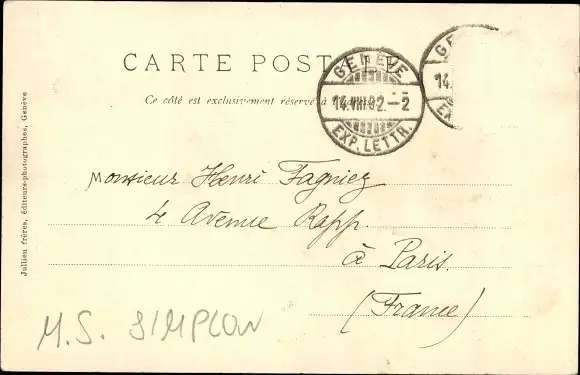 CARTE POST
Ce côté est exclusivement réservé à
GENÈVE
14.VIII.02.–2
EXP. LETTR.
GE
14.
EX
Monsieur Henri Fagniez
4 Avenue Rapp.
à Paris.
(France)
M.S. SIMPLON
Jullien frères, éditeurs-photographes, Genève